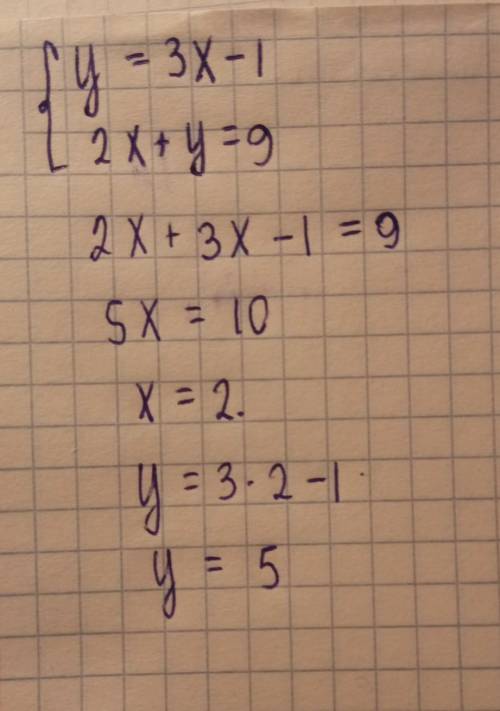 { y = 3x - 1
2x + y = 9
2x + 3x - 1 = 9
5x = 10
x = 2.
y = 3 · 2 - 1
y = 5